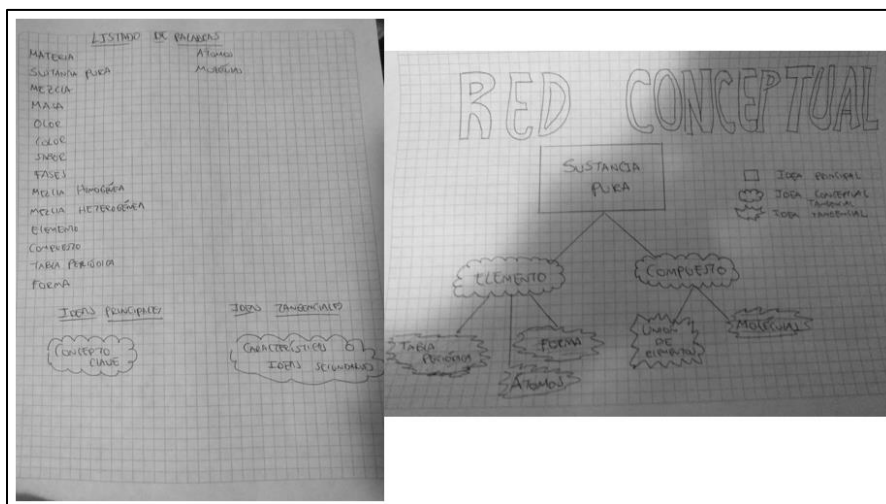 LISTADO DE PALABRAS
MATERIA
SUSTANCIA PURA
MEZCLA
MASA
OLOR
COLOR
SABOR
FASES
MEZCLA HOMOGÉNEA
MEZCLA HETEROGÉNEA
ELEMENTO
COMPUESTO
TABLA PERIÓDICA
FORMA
ÁTOMOS
MOLÉCULAS
IDEAS PRINCIPALES
CONCEPTO
CLAVE
IDEAS TANGENCIALES
CARACTERÍSTICAS O
IDEAS SECUNDARIAS
RED CONCEPTUAL
SUSTANCIA
PURA
IDEA PRINCIPAL
IDEA CONCEPTUAL
TANGENCIAL
IDEA TANGENCIAL
ELEMENTO
COMPUESTO
TABLA
PERIÓDICA
ÁTOMOS
FORMA
UNIÓN
DE
ELEMENTOS
MOLÉCULAS